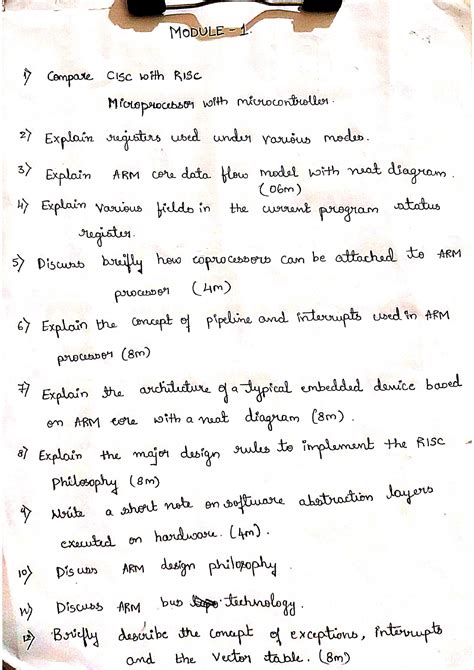 MODULE - 1.
1) Compare CISC with RISC
Microprocessor with microcontroller.
2) Explain registers used under various modes.
3) Explain ARM core data flow model with neat diagram.
(06m)
4) Explain various fields in the current program status
register.
5) Discuss breifly how coprocessors can be attached to ARM
processor (4m)
6) Explain the concept of pipeline and interrupts used in ARM
processor (8m)
7) Explain the architecture of a typical embedded device based
on ARM core with a neat diagram (8m).
8) Explain the major design rules to implement the RISC
Philosophy (8m)
9) Write a short note on software abstraction layers
executed on hardware. (4m).
10) Discuss ARM design philosophy.
11) Discuss ARM bus technology.
12) Briefly describe the concept of exceptions, interrupts
and the vector table. (8m)